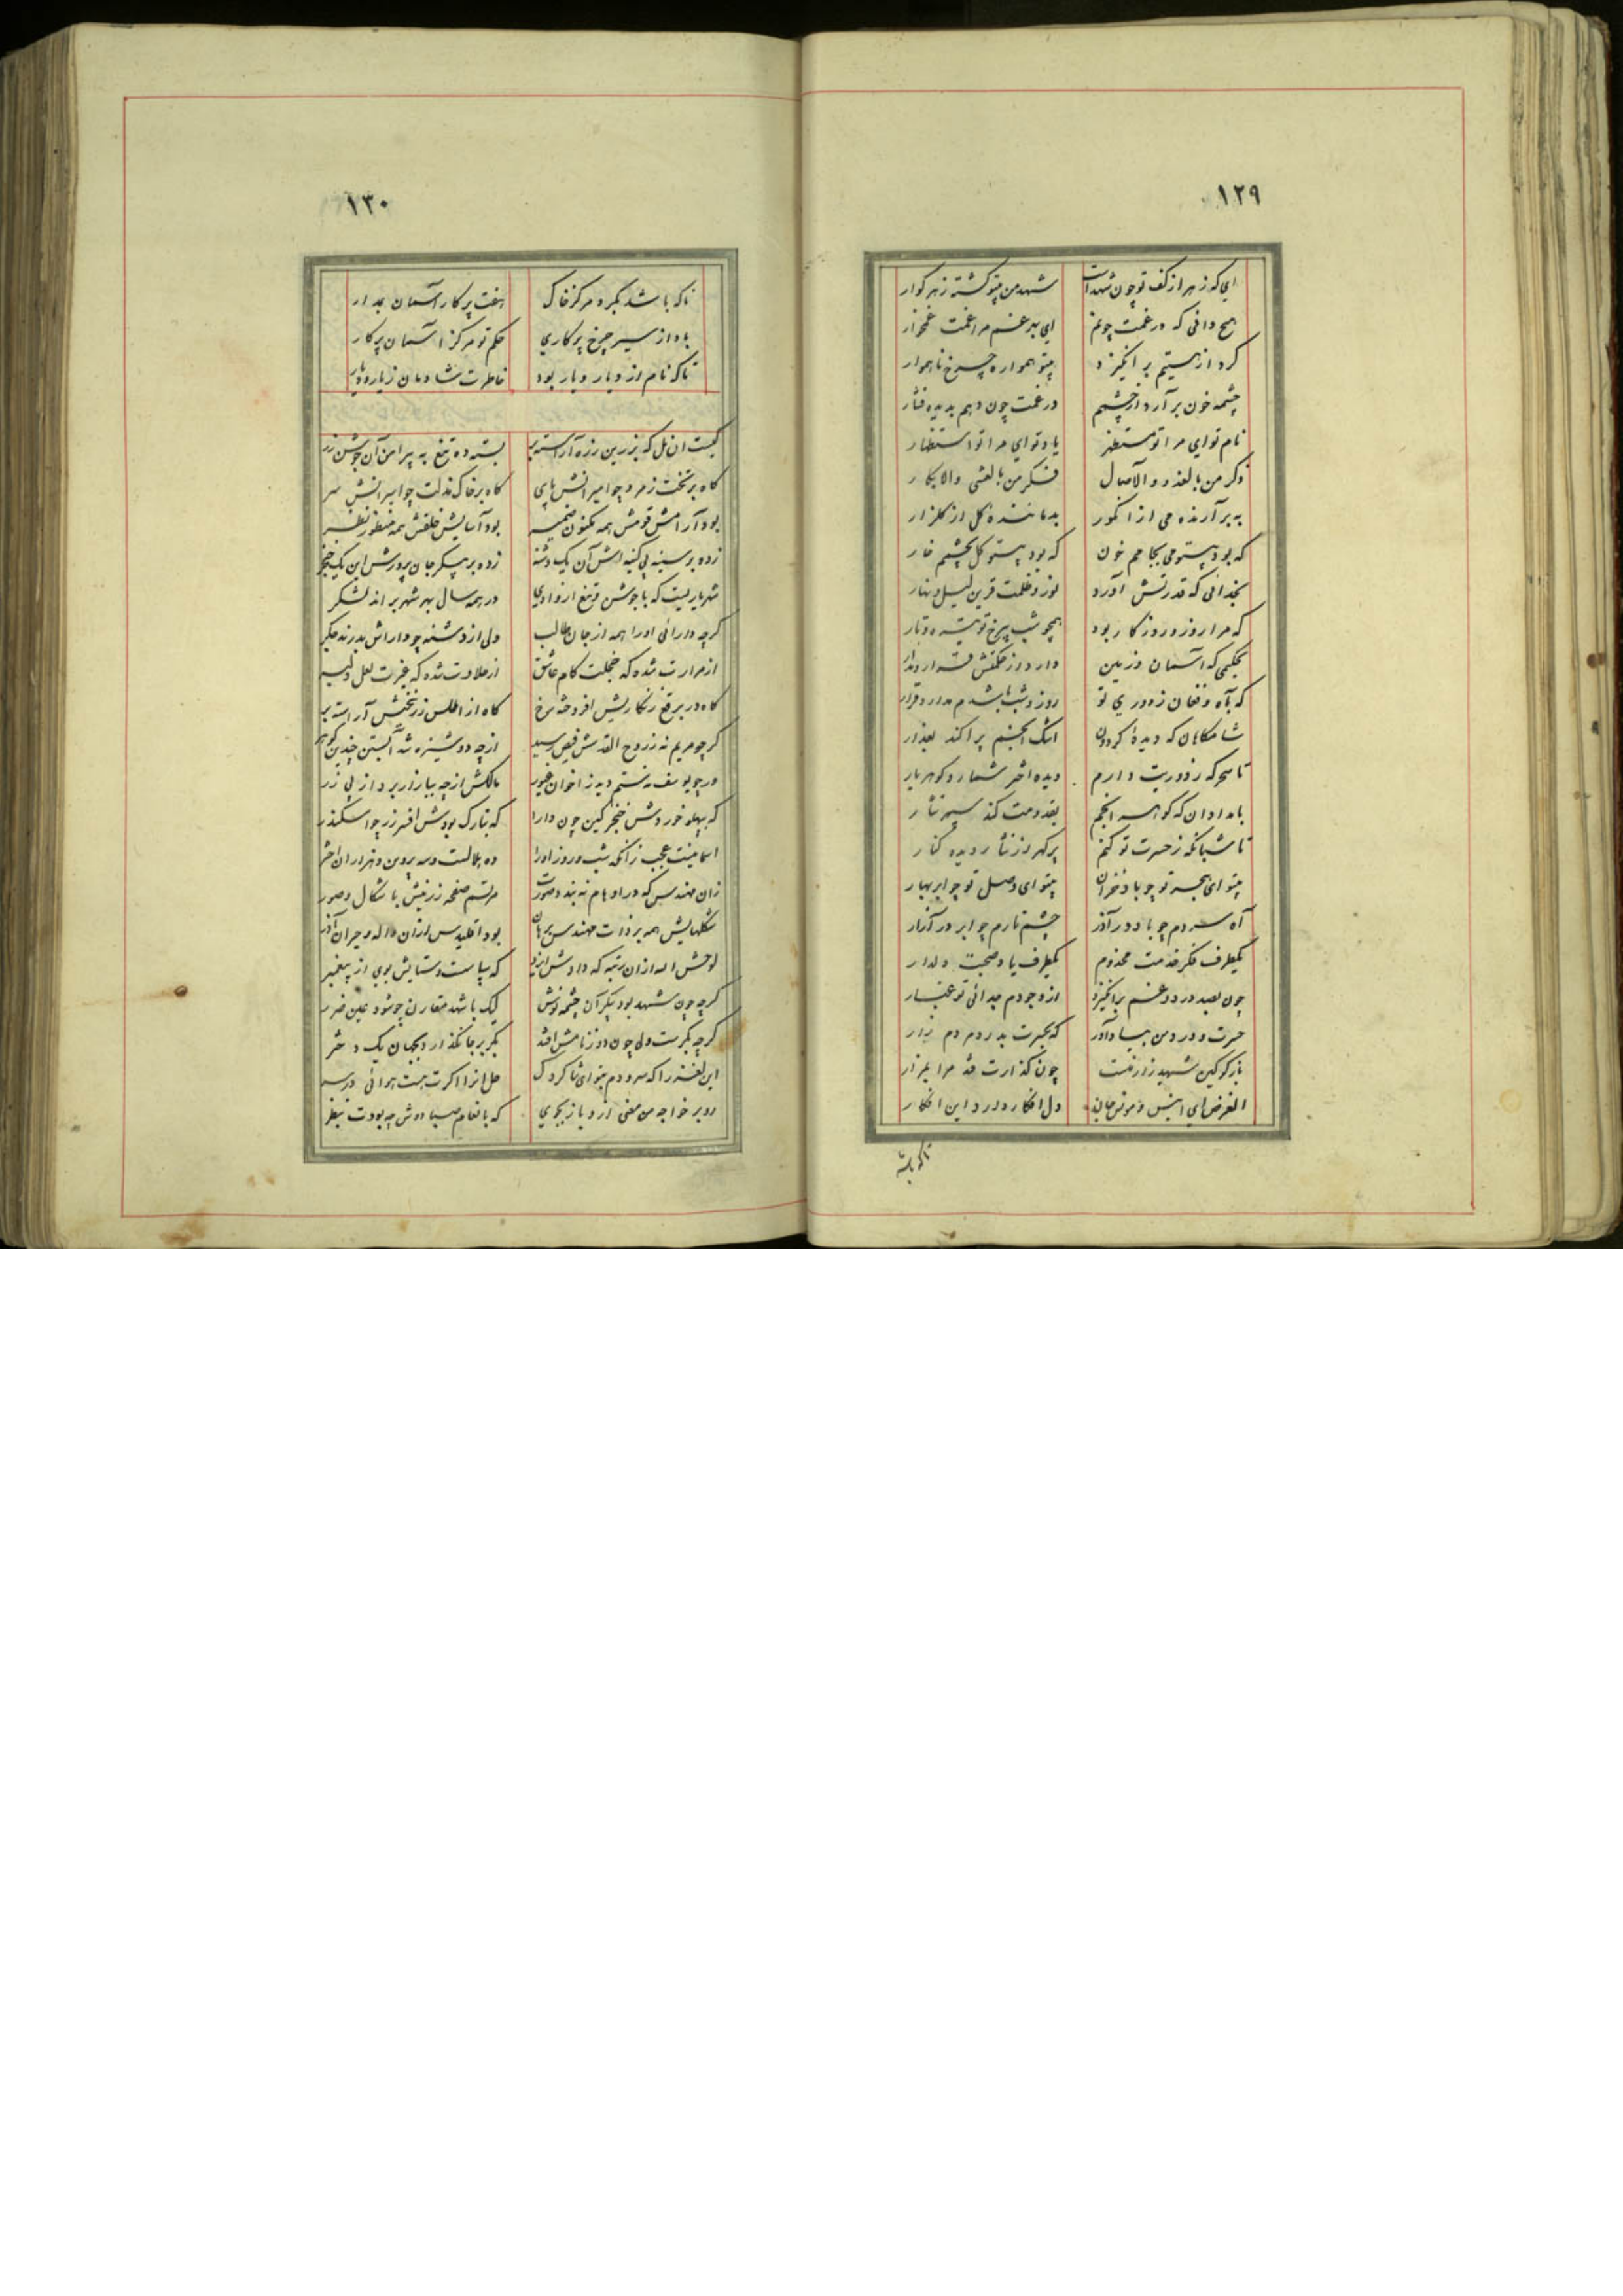 ۱۲۹
ای که زهر از کف تو چون شهد است شهد من بیتو گشته زهر گوار
هیچ دانی که در غمت چونم ای بهر غم مرا غمت غمخوار
گرد از هستیم برانگیزد بیتو همواره چرخ ناهموار
چشمه خون برآرد از چشمم در غمت چون دهم بدیده فشار
نام تو ای مرا تو مستظهر یاد تو ای مرا تو استظهار
ذکر من بالغدو والآصال فکر من بالعشی والابکار
به برآرنده می از انگور بدماننده گل از گلزار
که بود بیتو می بجامم خون که بود بیتو گل بچشمم خار
بخدائی که قدرتش آورد نور و ظلمت قرین لیل و نهار
که مرا روز و روزگار بود همچو شب بیرخ تو تیره و تار
بحکیمی که آسمان و زمین دارد از حکمتش قرار و مدار
که بآه و فغان ز دوری تو روز و شب باشدم مدار و قرار
شامگاهان که دیده گردون اشک انجم پراکند بعذار
تا سحرگه ز دوریت دارم دیده اختر شمار و گوهربار
بامدادان که گوهر انجم بقدومت کند سپهر نثار
تا شبانگه ز حسرت تو کنم پر گهر از نثار دیده کنار
بیتو ای هجر تو چو باد خزان بیتو ای وصل تو چو ابر بهار
آه سردم چو باد در آذر چشم تارم چو ابر در آزار
یکطرف فکر خدمت مخدوم یکطرف یاد صحبت دلدار
چون بصد درد و غم برانگیزد از وجودم جدائی تو غبار
حسرت و درد من بیاد آور که بحسرت بدرد مردم زار
بازگو کاین شهید زار منست چون گذارت فتد مرا بمزار
الغرض ای انیس و مونس جان دل افکار دارد این افکار
تا که باشد
۱۳۰
تا که باشد بگرد مرکز خاک هفت پرگار آسمان بمدار
باد از سیر چرخ پرگاری حکم تو مرکز آسمان پرگار
تا که نام از دیار و یار بود خاطرت شادمان ز یار و دیار
کیست آن یل که بزرین زره آراسته بر بسته ده تیغ به پیرامن آن جوشن زر
گاه بر تخت زمرد چو امیرانش پای گاه بر خاک مذلت چو اسیرانش سر
بود آرامش قومش همه مکنون ضمیر بود آسایش خلقش همه منظور نظر
زده بر سینه بی کینه اش آن یک دشنه زده بر پیکر جان پرورش این یک خنجر
شهریاریست که با جوشن و تیغ از وادی در همه سال بهر شهر براند لشکر
گرچه دارائی او را همه از جان طالب ولی از دشنه چو داراش بدرند جگر
از مرارت شده که خجلت کام عاشق از حلاوت شده که غیرت لعل دلبر
گاه در برقع زنگاریش افروخته رخ گاه از اطلس زربفتش آراسته بر
گر چو مریم نه ز روح القدسش فیض رسید از چه دوشیزه شد آبستن چندین گوهر
ور چو یوسف نه ستم دید ز اخوان غیور مالکش از چه ببازار برد از پی زر
که بپهلو خوردش خنجر کین چون دارا که بتارک بودش افسر زر چو اسکندر
آسمانیست عجب زانکه شب و روز او را ده هلالست و سه پروین و هزاران اختر
زان مهندس که در اوهام نه بندد صورت مرتسم صفحه زرینش با شکال و صور
شکلهایش همه بر ذات مهندس برهان بود اقلیدس از آن واله و حیران آذر
لوحش الله از آن رتبه که دادش ایزد که بپاست و ستایش بوی از پیغمبر
گرچه چون شهد بود پیکر آن چشمه نوش لیک با شهد مقارن چو شود عین ضرر
گرچه بکرست ولی چون دو ز نامش افتد بکر بر جا نگذارد بجهان یک دختر
این لغز را که سرودم بنوای شاگردک حل آنرا اگرت هست هوائی در سر
رو بر خواجه من معنی از و باز بجوی که بانعام صبا دوش چه بودت بنظر